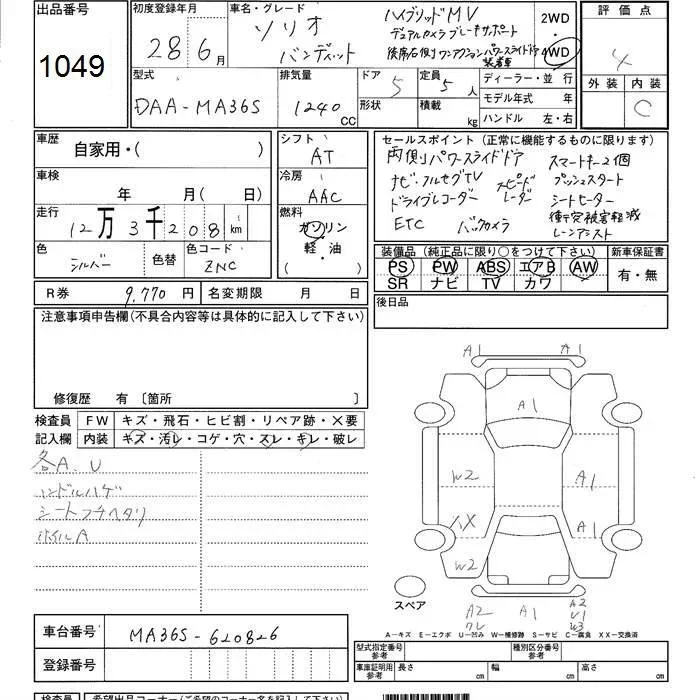 出品番号
1049
初度登録年月
28年6月
車名・グレード
ソリオ
バンディット
ハイブリッドMV
デュアルカメラブレーキサポート
後席右側ワンアクションパワースライドドア
装着車
2WD
4WD
評価点
4
外装 内装
C
型式
DAA-MA36S
排気量
1240 CC
ドア
5
形状
定員
5人
積載 kg
ディーラー・並行
モデル年式 年
ハンドル 左・右
車歴
自家用・( )
車検
年 月( 日)
走行
12万3千208 km
色
シルバー
色替
色コード
ZNC
シフト
AT
冷房
AAC
燃料
ガソリン
軽・油
( ・ )
セールスポイント (正常に機能するものに限ります)
両側パワースライドドア スマートキー2個
ナビ・フルセグTV スピード プッシュスタート
ドライブレコーダー レーダー シートヒーター
ETC バックカメラ 衝突被害軽減
レーンアシスト
装備品 (純正品に限り○をつけて下さい)
PS PW ABS エアB AW
SR ナビ TV カワ
新車保証書
有・無
R券 9,770円
名変期限 月 日
後日品
注意事項申告欄(不具合内容等は具体的に記入して下さい)
修復歴 有 〔箇所 〕
検査員
記入欄
FW キズ・飛石・ヒビ割・リペア跡・X要
内装 キズ・汚レ・コゲ・穴・スレ・キレ・破レ
各A.U
ハンドルハゲ
シートフチヘタリ
ホイルA
A1 A1
A1
W2 A1
XX A1
W2
A2 A1 A2
U1
W3
スペア
A-キズ E-エクボ U-凹み W-補修跡 S-サビ C-腐食 XX-交換済
車台番号
MA36S-620826
登録番号
型式指定番号
参考
種別区分番号
参考
車庫証明用
参考
長さ cm 幅 cm 高さ cm
検査員
希望出品コーナー(ご希望のコーナー名を記入下さい)